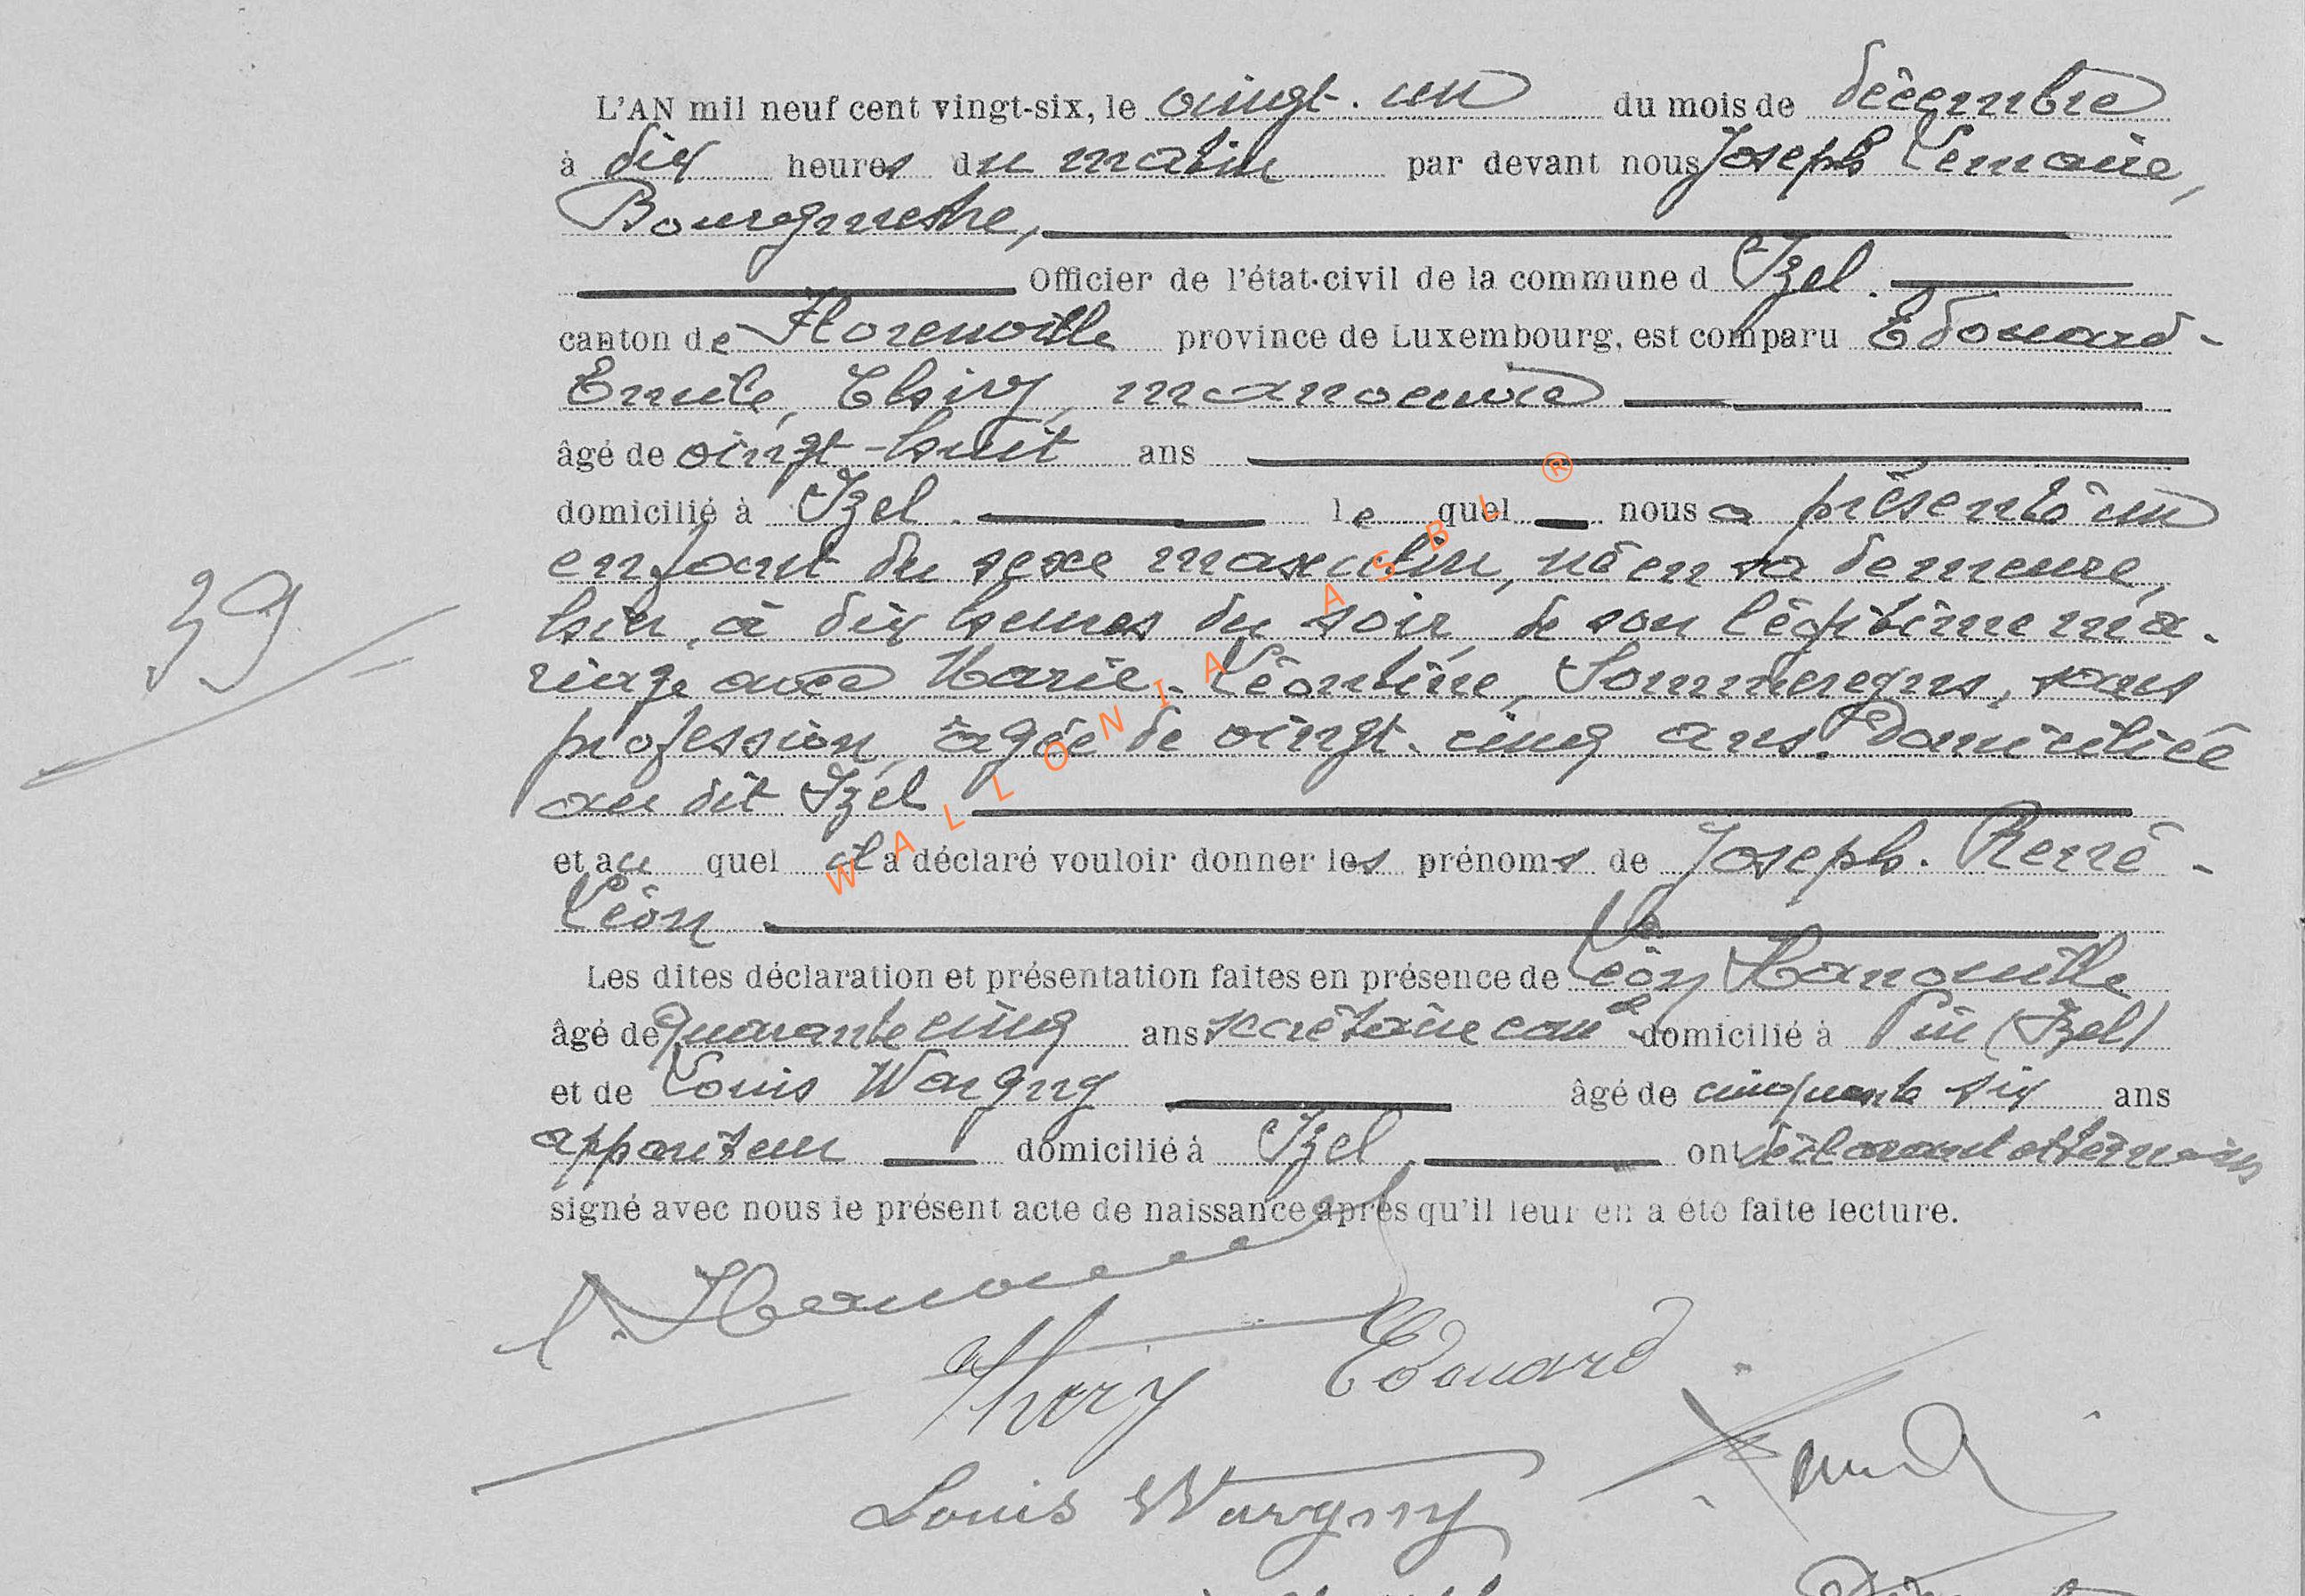 L'AN mil neuf cent vingt-six, le vingt-un du mois de décembre
à dix heures du matin par devant nous Joseph Lemaire,
Bourgmestre,
Officier de l'état-civil de la commune d Izel.
canton de Florenville province de Luxembourg, est comparu Edouard-
Emile, Thiry, manoeuvre
âgé de vingt-huit ans
domicilié à Izel. le quel nous a présenté un
enfant du sexe masculin, né en sa demeure,
hier, à dix heures du soir, de son légitime ma-
39
riage avec Marie-Léontine, sans
profession, âgée de vingt-cinq ans. Domiciliée
au dit Izel
et au quel il a déclaré vouloir donner les prénoms de Joseph-René-
Léon
Les dites déclaration et présentation faites en présence de Léon Hanouille
âgé de quarante cinq ans secrétaire comal domicilié à Pin (Izel)
et de Louis Wargny âgé de cinquante six ans
appariteur domicilié à Izel. ont déclarant et témoins
signé avec nous le présent acte de naissance après qu'il leur en a été faite lecture.
Thiry Edouard
Louis Wargny
WALLONIA ASBL ®